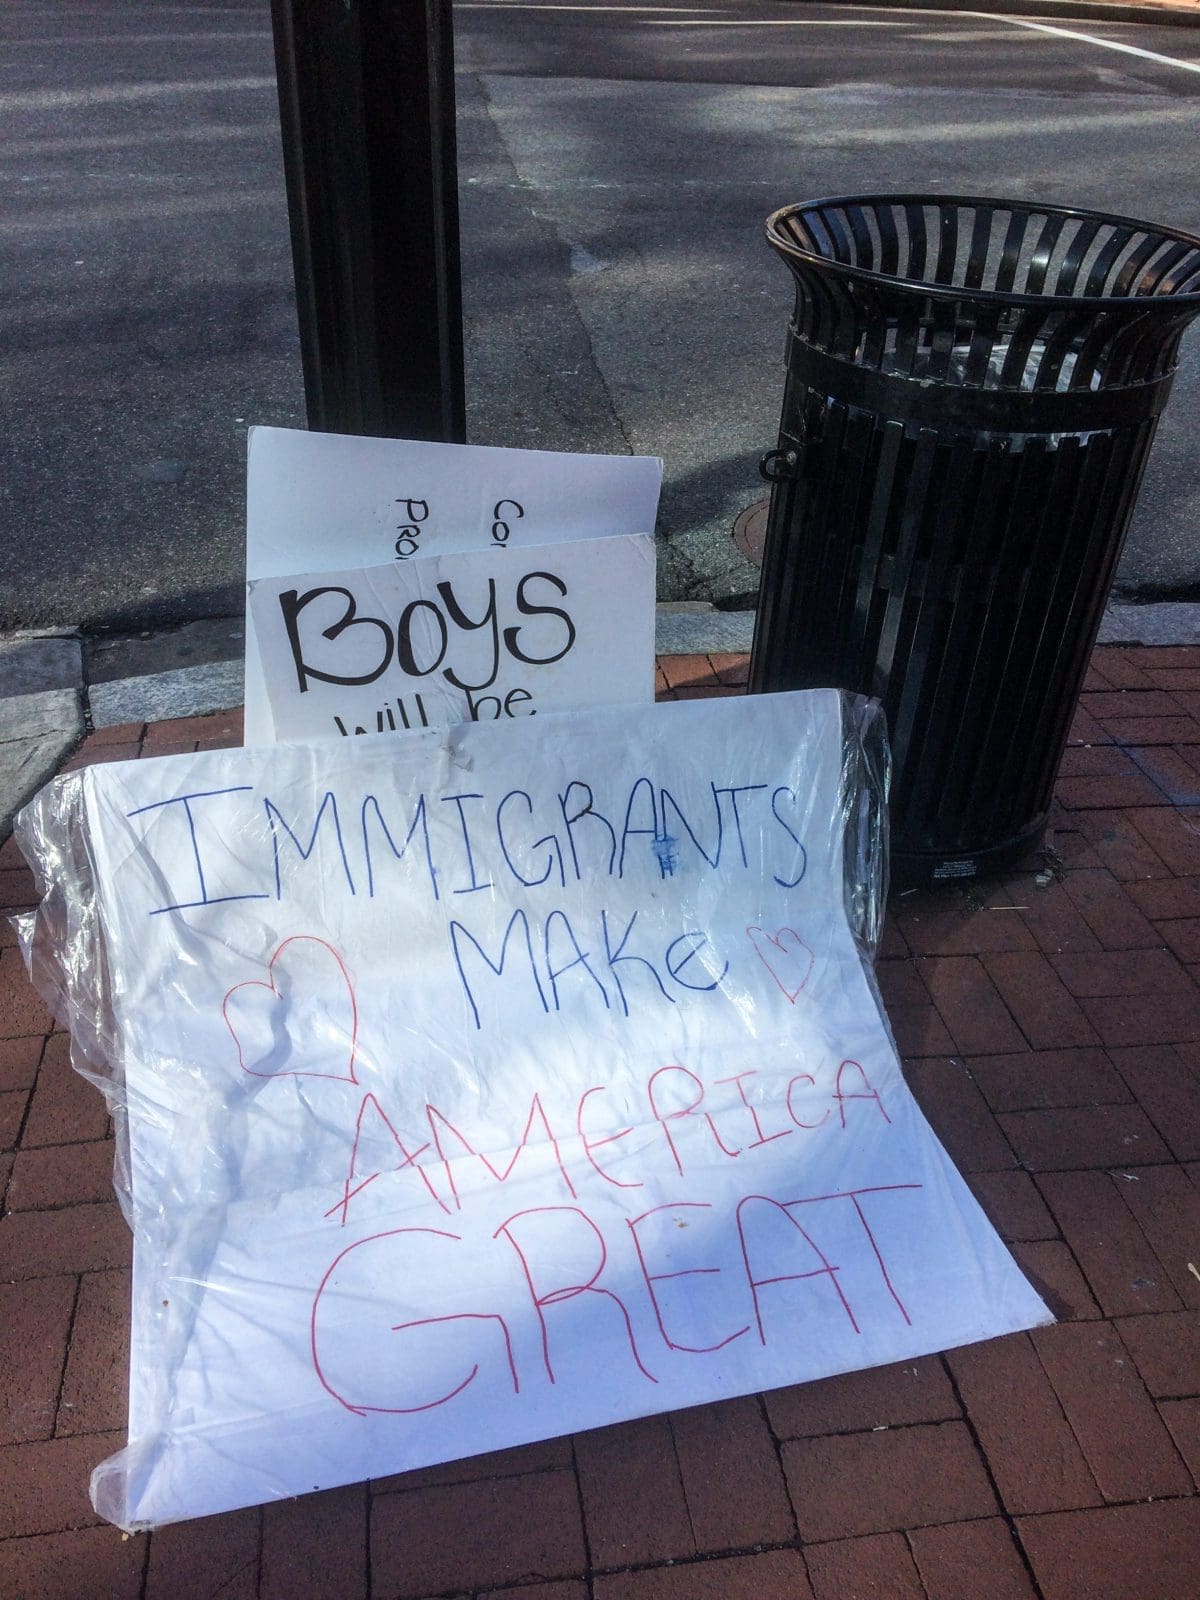 Con
Pro
Boys
will be
IMMIGRANTS
MAKe
AMERICA
GREAT